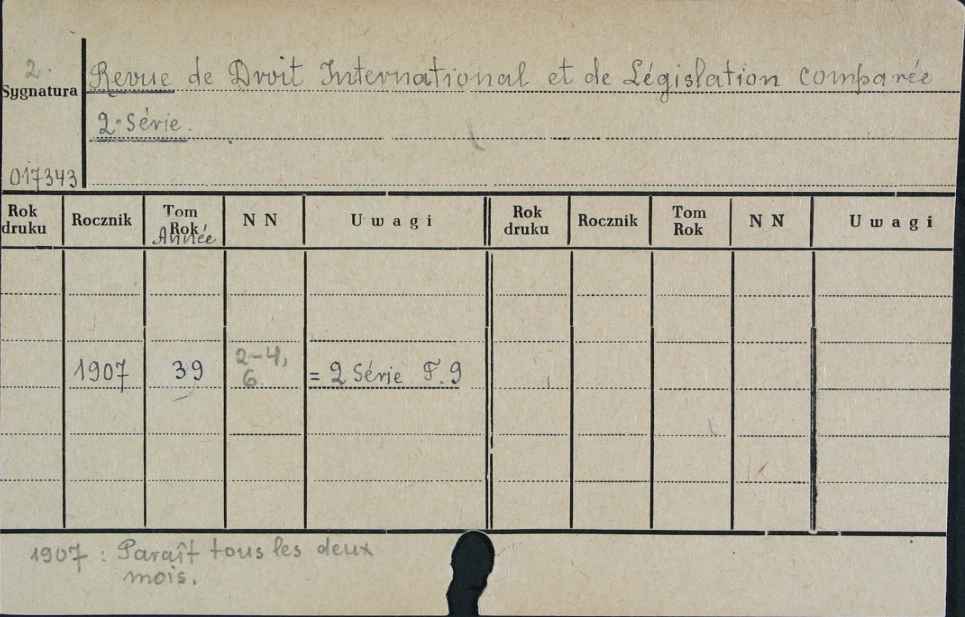 2.
Revue de Droit International et de Législation comparée
Sygnatura
2e Série.
017343
Rok druku Rocznik Tom Rok Année N N Uwagi Rok druku Rocznik Tom Rok N N Uwagi
1907 39 2-4, 6 = 2 Série T. 9
1907 : Paraît tous les deux
mois.